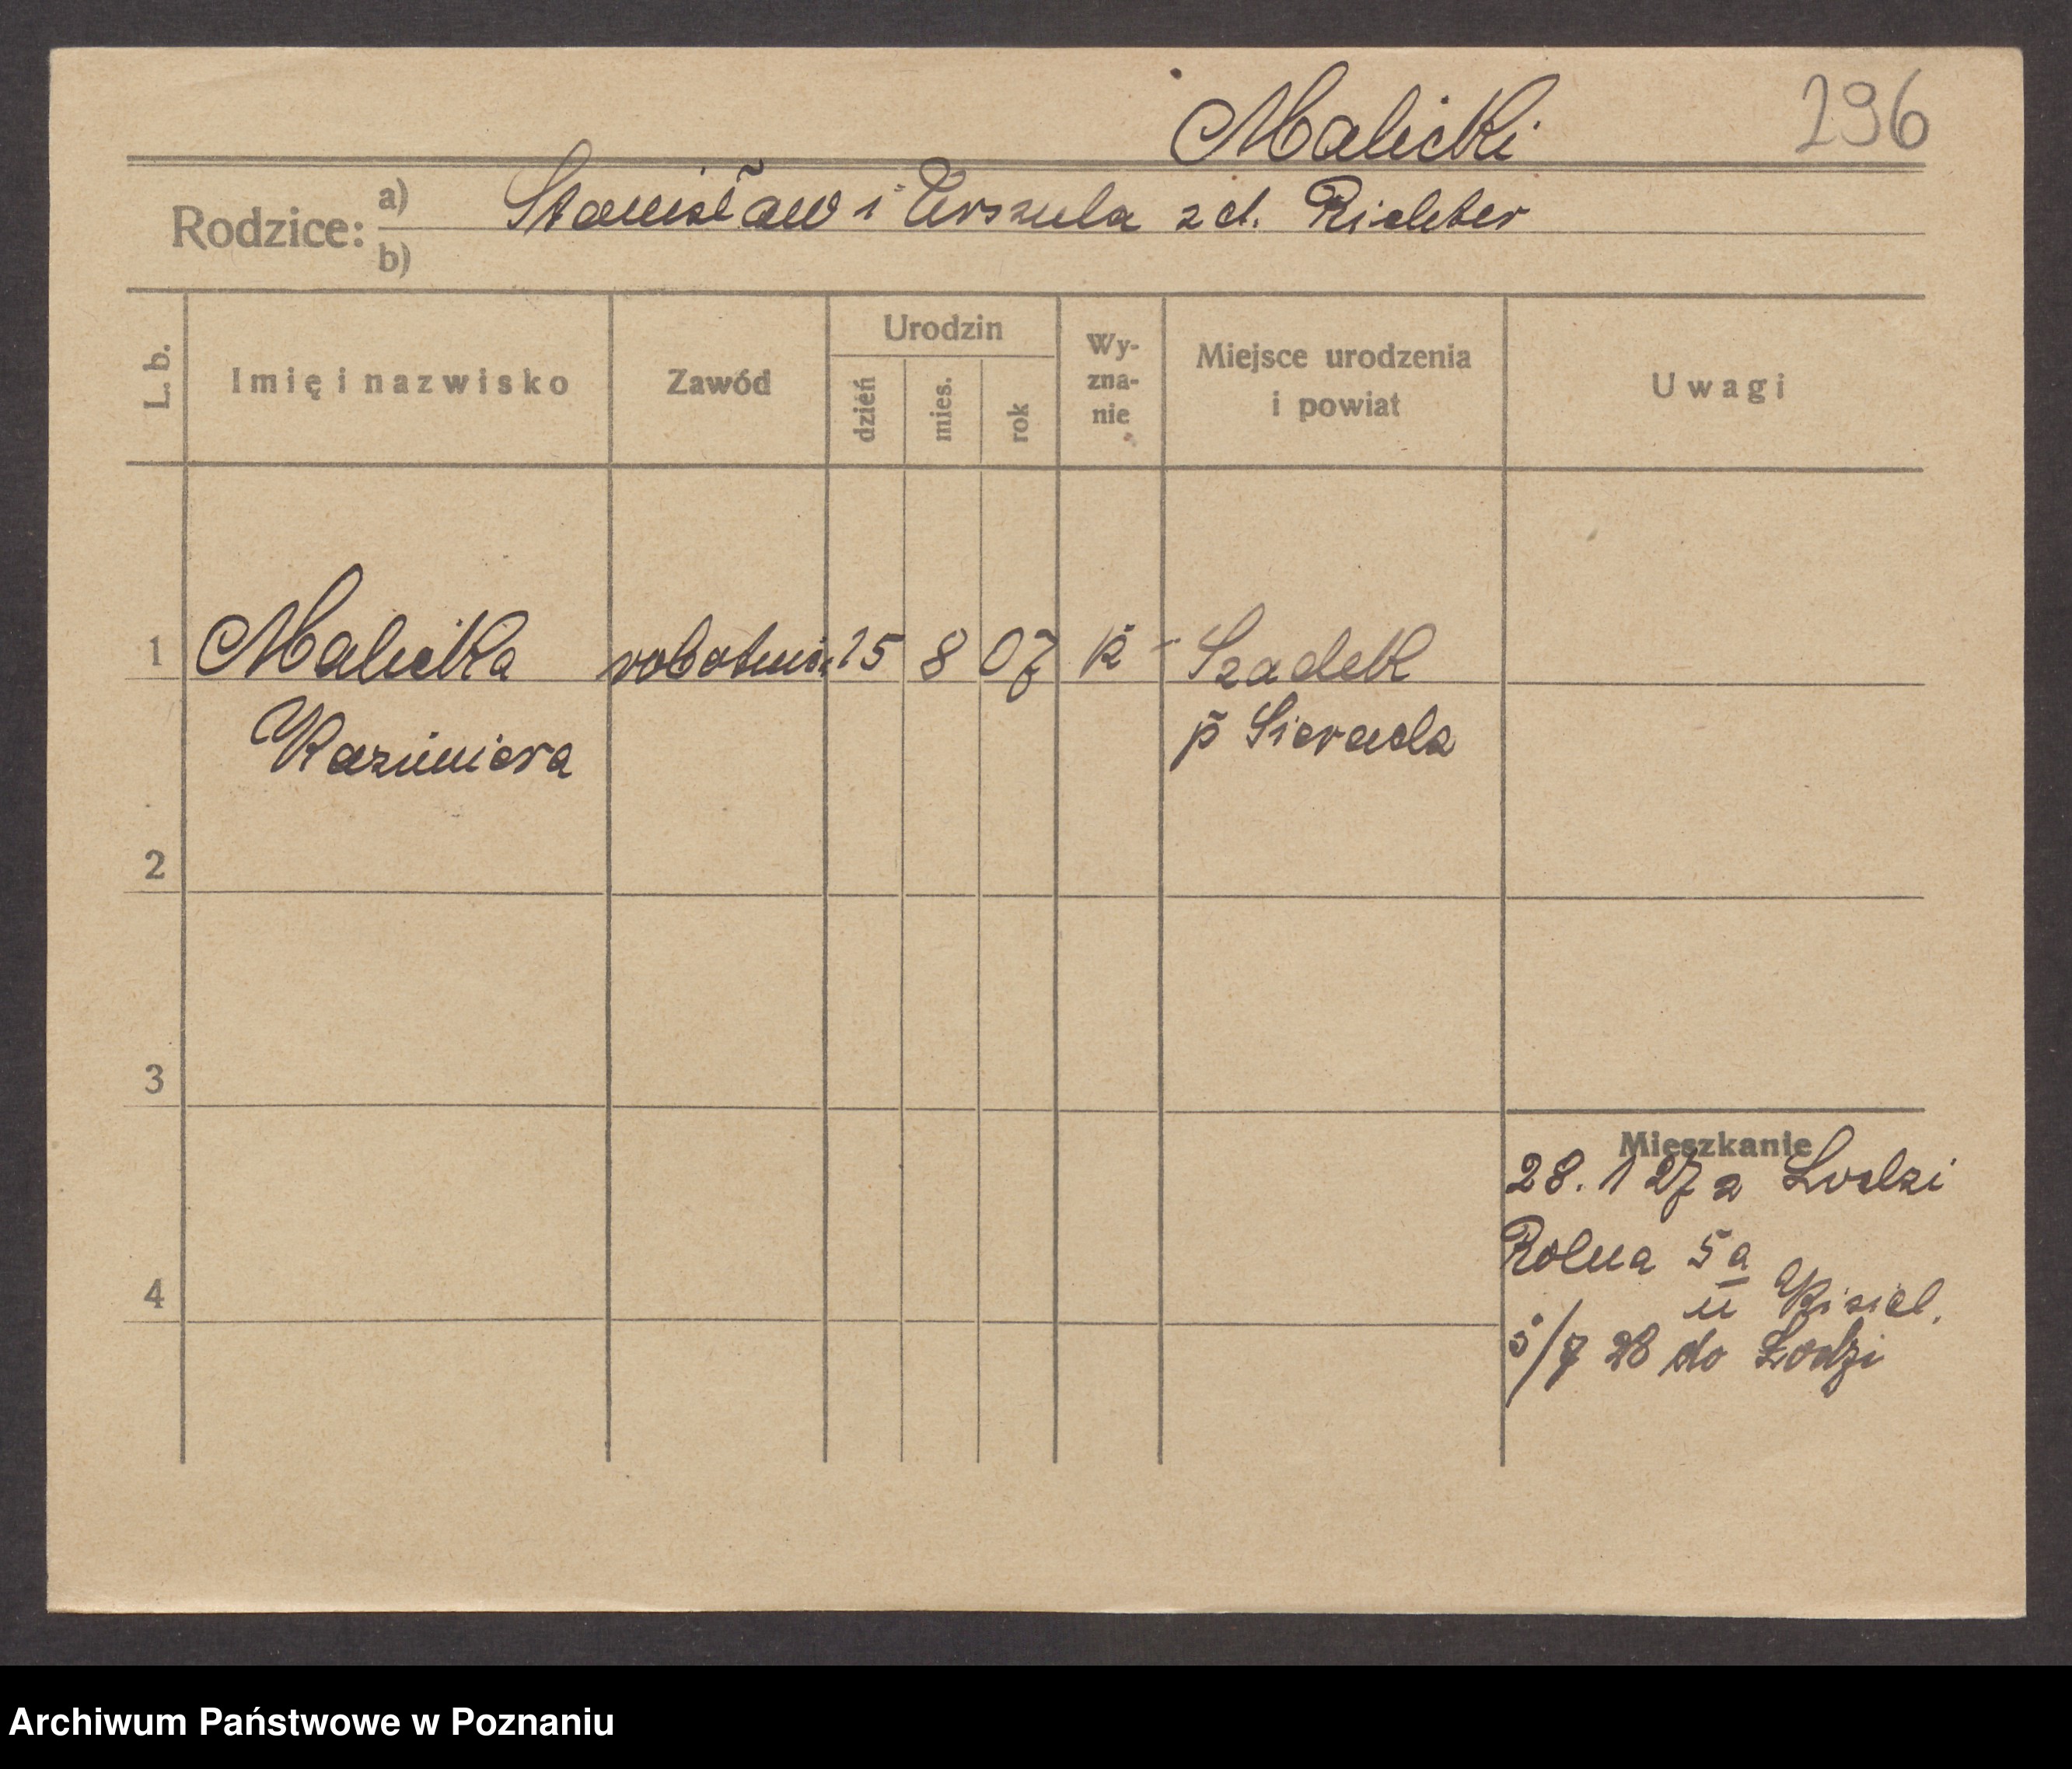 Malicki 296
Rodzice: a) Stanisław i Urszula zd. Richter
b)
L. b. Imię i nazwisko Zawód Urodzin dzień mies. rok Wy-zna-nie Miejsce urodzenia i powiat Uwagi
1 Malicka robotnic. 15 8 07 k - Szadek
Kazimiera p Sieradz
2
3
Mieszkanie
28. 1 27 z Lodzi
Rolna 5a
4 u Kisiel.
5/7 28 do Łodzi
Archiwum Państwowe w Poznaniu